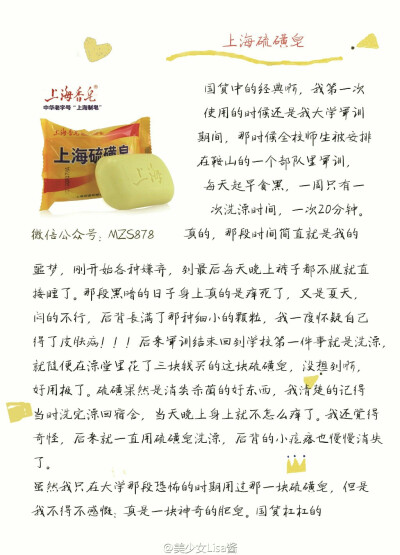 上海硫磺皂
上海香皂®
中华老字号“上海制皂”
上海硫磺皂
上海
国货中的经典啊，我第一次
使用的时候还是我大学军训
期间，那时候全校师生被安排
在鞍山的一个部队里军训，
每天起早贪黑，一周只有一
次洗漱时间，一次20分钟。
微信公众号：MZS878
真的，那段时间简直就是我的
噩梦，刚开始各种嫌弃，到最后每天晚上裤子都不脱就直
接睡了。那段黑暗的日子身上真的是痒死了，又是夏天，
闷的不行，后背长满了那种细小的颗粒，我一度怀疑自己
得了皮肤病！！！后来军训结束回到学校第一件事就是洗漱，
就随便在澡堂里花了三块钱买的这块硫磺皂，没想到啊，
好用极了。硫磺果然是消炎杀菌的好东西，我清楚的记得
当时洗完澡回宿舍，当天晚上身上就不怎么痒了。我还觉得
奇怪，后来就一直用硫磺皂洗澡，后背的小疙瘩也慢慢消失
了。
虽然我只在大学那段恐怖的时期用过那一块硫磺皂，但是
我不得不感慨：真是一块神奇的肥皂。国货杠杠的
@美少女Lisa酱